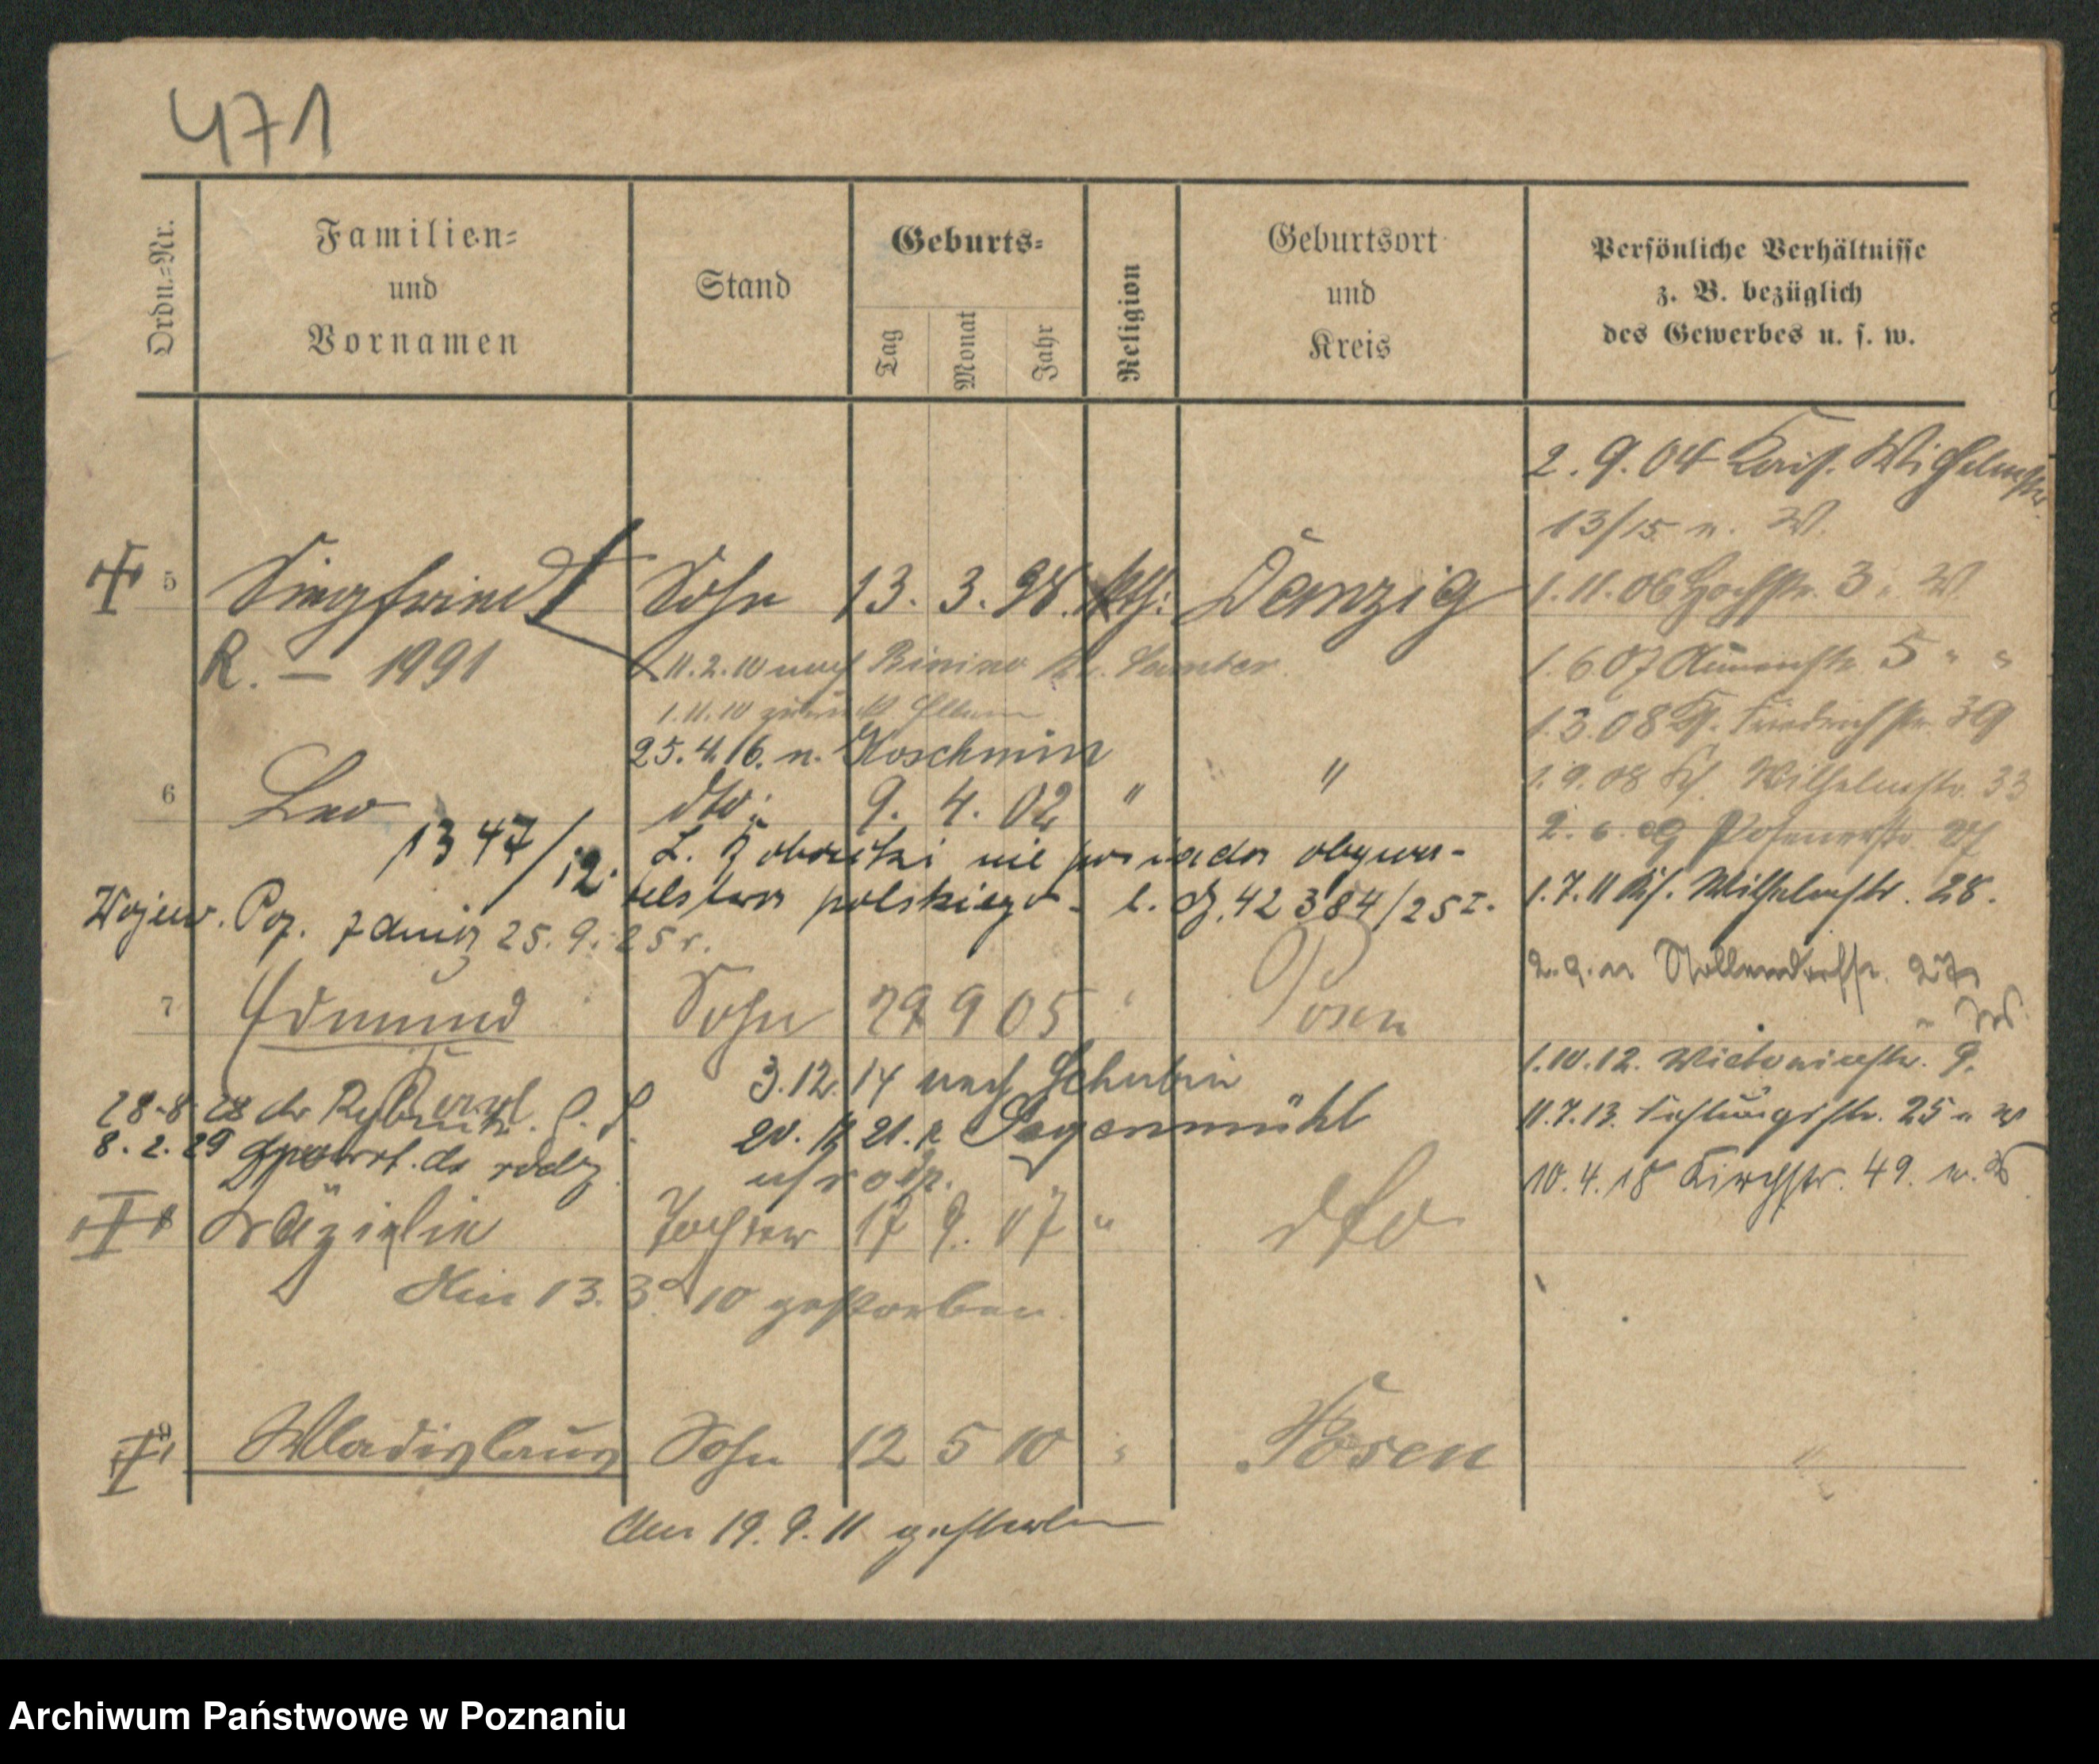 471
Ordn.-Nr.
Familien-
und
Vornamen
Stand
Geburts-
Tag
Monat
Jahr
Religion
Geburtsort
und
Kreis
Persönliche Verhältnisse
z. B. bezüglich
des Gewerbes u. s. w.
5 Siegfried Sohn 13. 3. 98. kth: Danzig
R. — 1991
11.2.10 nach Binino Kr. Samter
1.11.10 zurück Eltern
25.4.16. n. Koschmin
6 Leo dto: 9. 4. 02 " "
1347/12.
L. nie posiada obywa-
telstwa polskiego. l. dz. 42384/25 I.
Wojew. Poz. z dnia 25.9.25 r.
7 Edmund Sohn 29 9 05 " Posen
3.12.14 nach Schubin
28.8.28 do
20. 21. Jagenmühl
8.2.29 do rodz.
8 Cäzielie Tochter 17 9. 07 " dto
13.3.10 gestorben
9 Wladislaus Sohn 12 5 10 " Posen
Am 19.9.11 gestorben
2.9.04 Kais. Wilhelmstr.
13/15 n. W.
1.11.06 Hochstr. 3 n. W.
1.6 07 5 " "
1.3.08 Kl. Friedrichstr. 39
1.9.08 Wilhelmstr. 33
2. 6. 09 Posenerstr. 27
1.7.11 Wilhelmstr. 28.
2.9.11 Nollendorfstr. 27
" W
1.10.12. Wictoriastr. 9.
11.7.13. Festungsstr. 25 n W
10.4.18 Kirchstr. 49. n. W
Archiwum Państwowe w Poznaniu